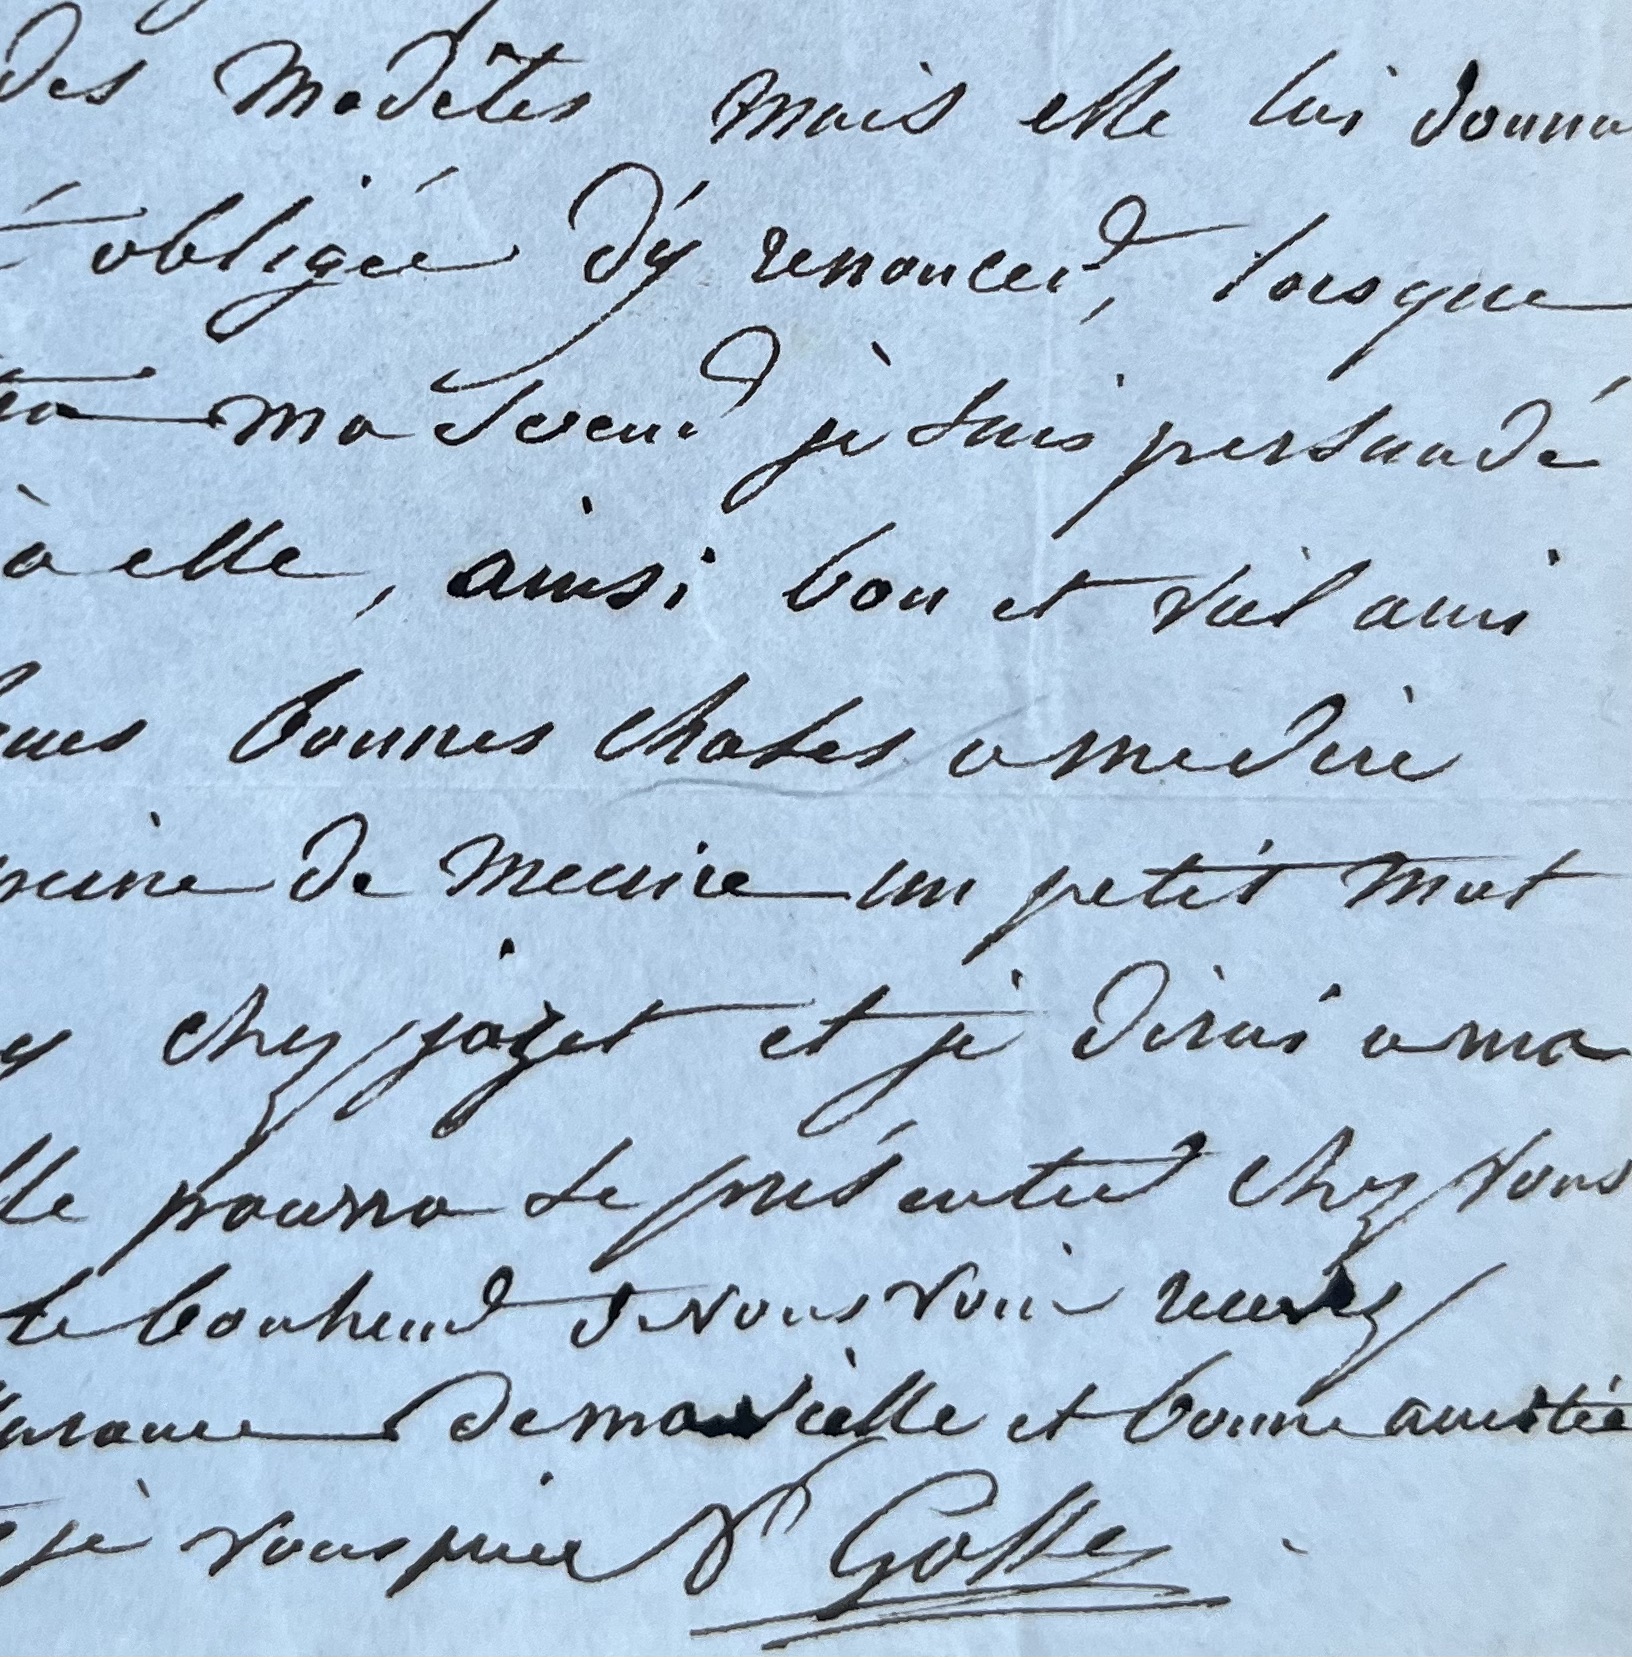 des modèles mais elle lui donna
obligée d'y renoncer, lorsque
ma soeur je suis persuadé
à elle, ainsi bon et viel ami
bonnes choses a me dire
peine de mecrire un petit mot
chez jazet et je dirai a ma
lle pourra se présenter chez vous
le bonheur de vous voir recevez
de ma vieille et bonne amitié
je vous prie N Gosse